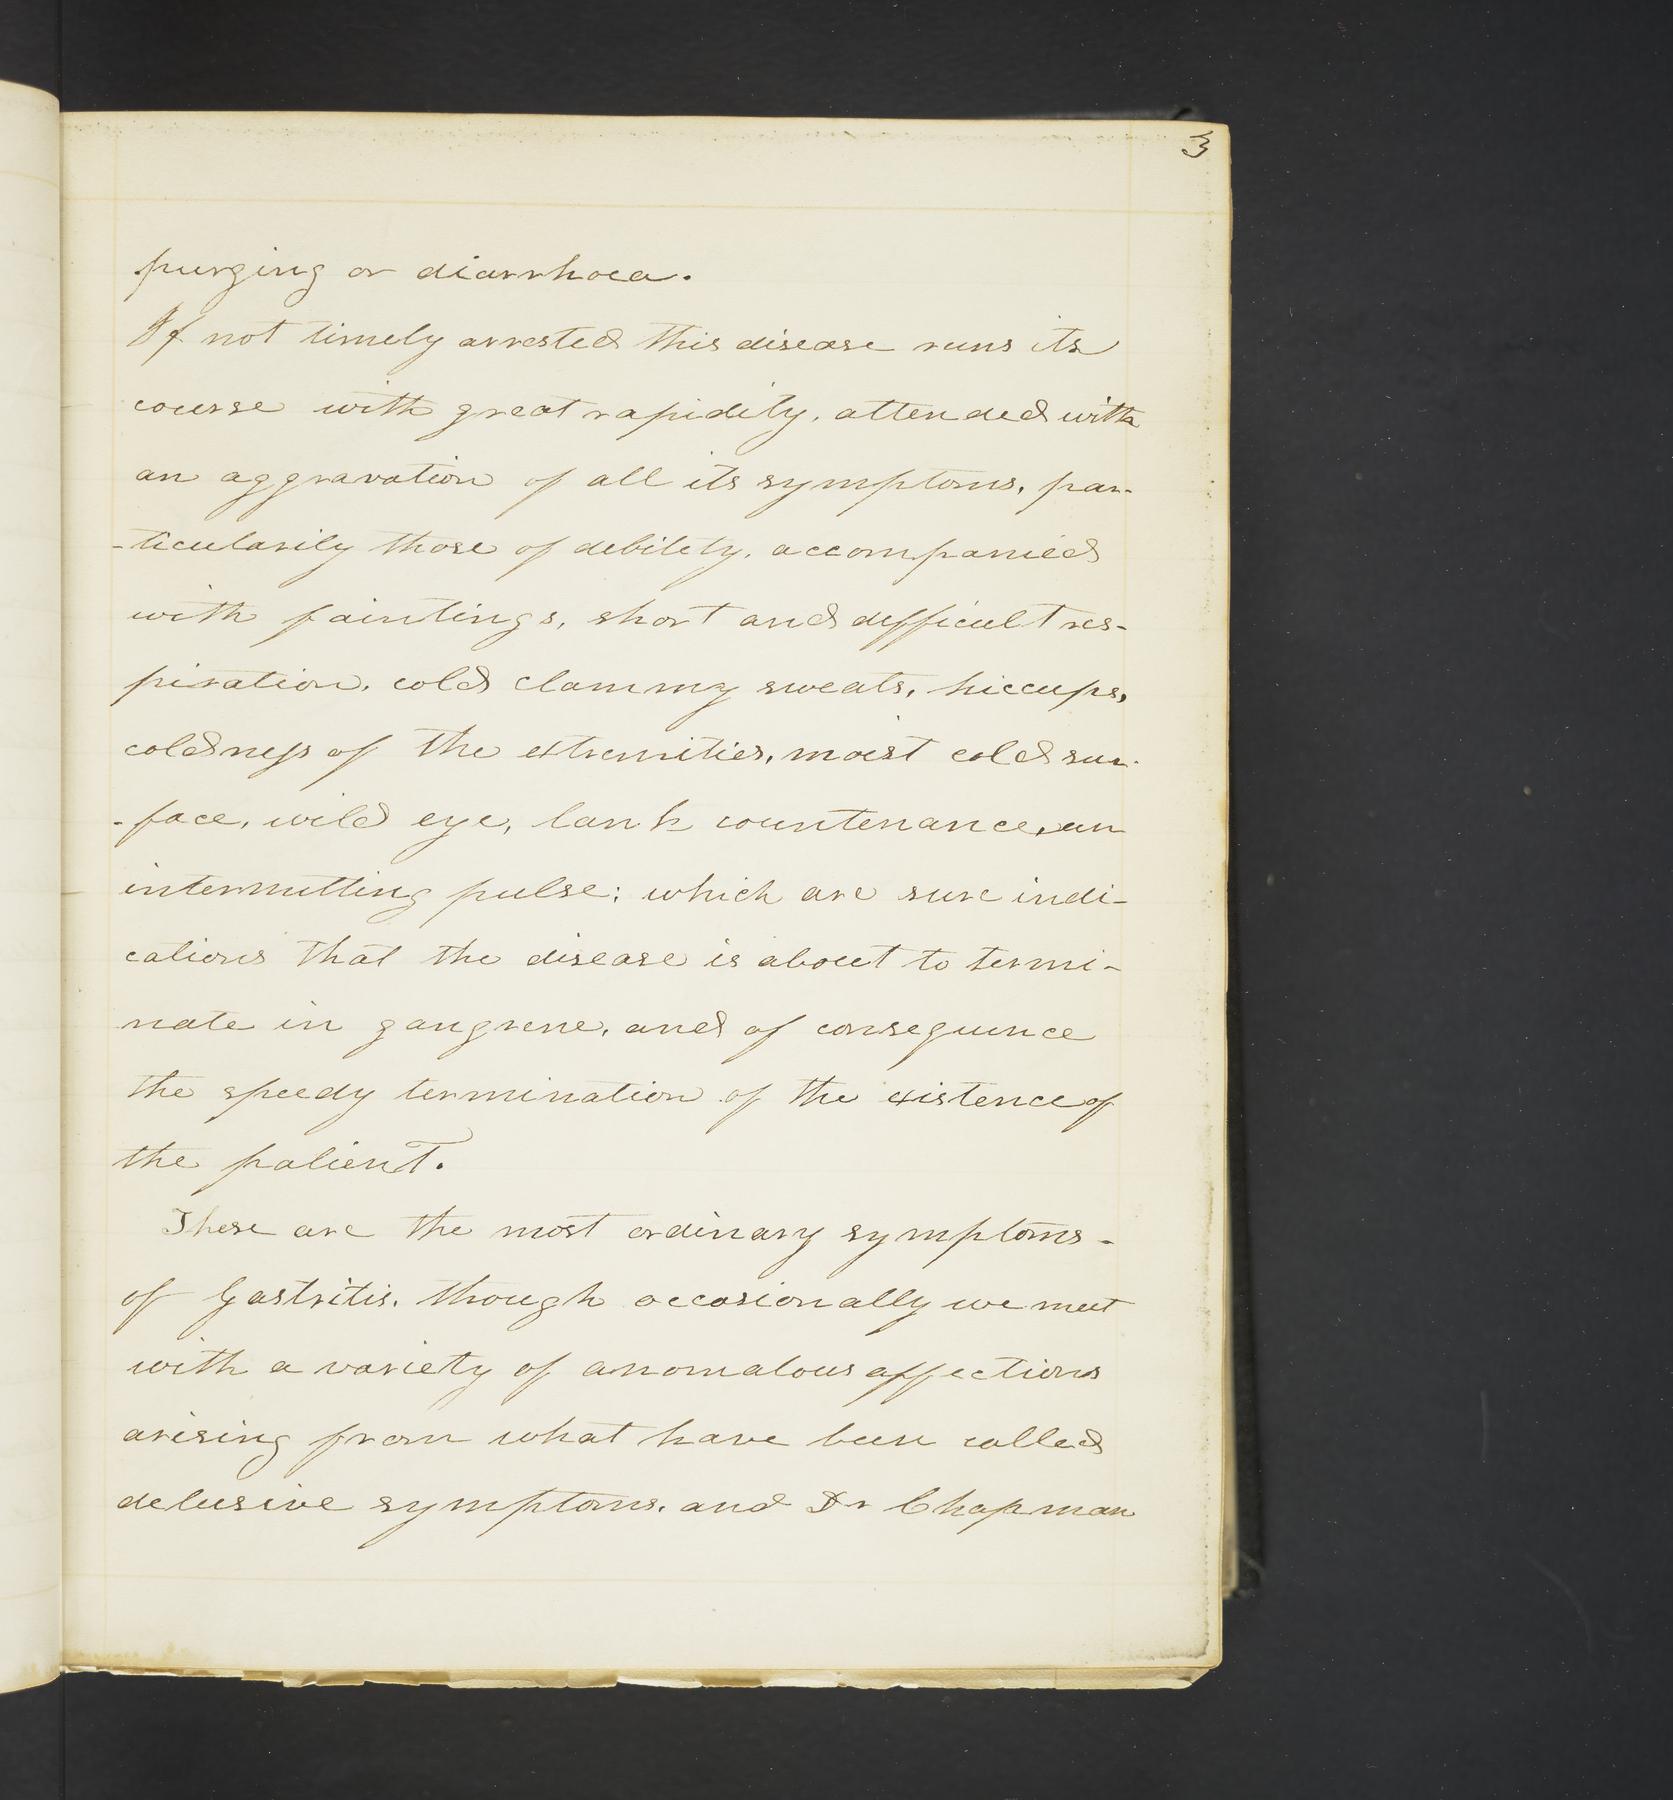 3
purging or diarrhoea.
If not timely arrested this disease runs its
course with great rapidity, attended with
an aggravation of all its symptoms, par-
-ticularily those of debility, accompanied
with faintings, short and difficult res-
piration, cold clammy sweats, hiccups,
coldness of the extremities, moist cold sur-
-face, wild eye, lank countenance, an
intermitting pulse; which are sure indi-
cations that the disease is about to termi-
nate in gangrene, and of consequence
the speedy termination of the existence of
the patient.
These are the most ordinary symptoms -
of Gastritis, though occasionally we meet
with a variety of anomalous affections
arising from what have been called
delusive symptoms, and Dr Chapman